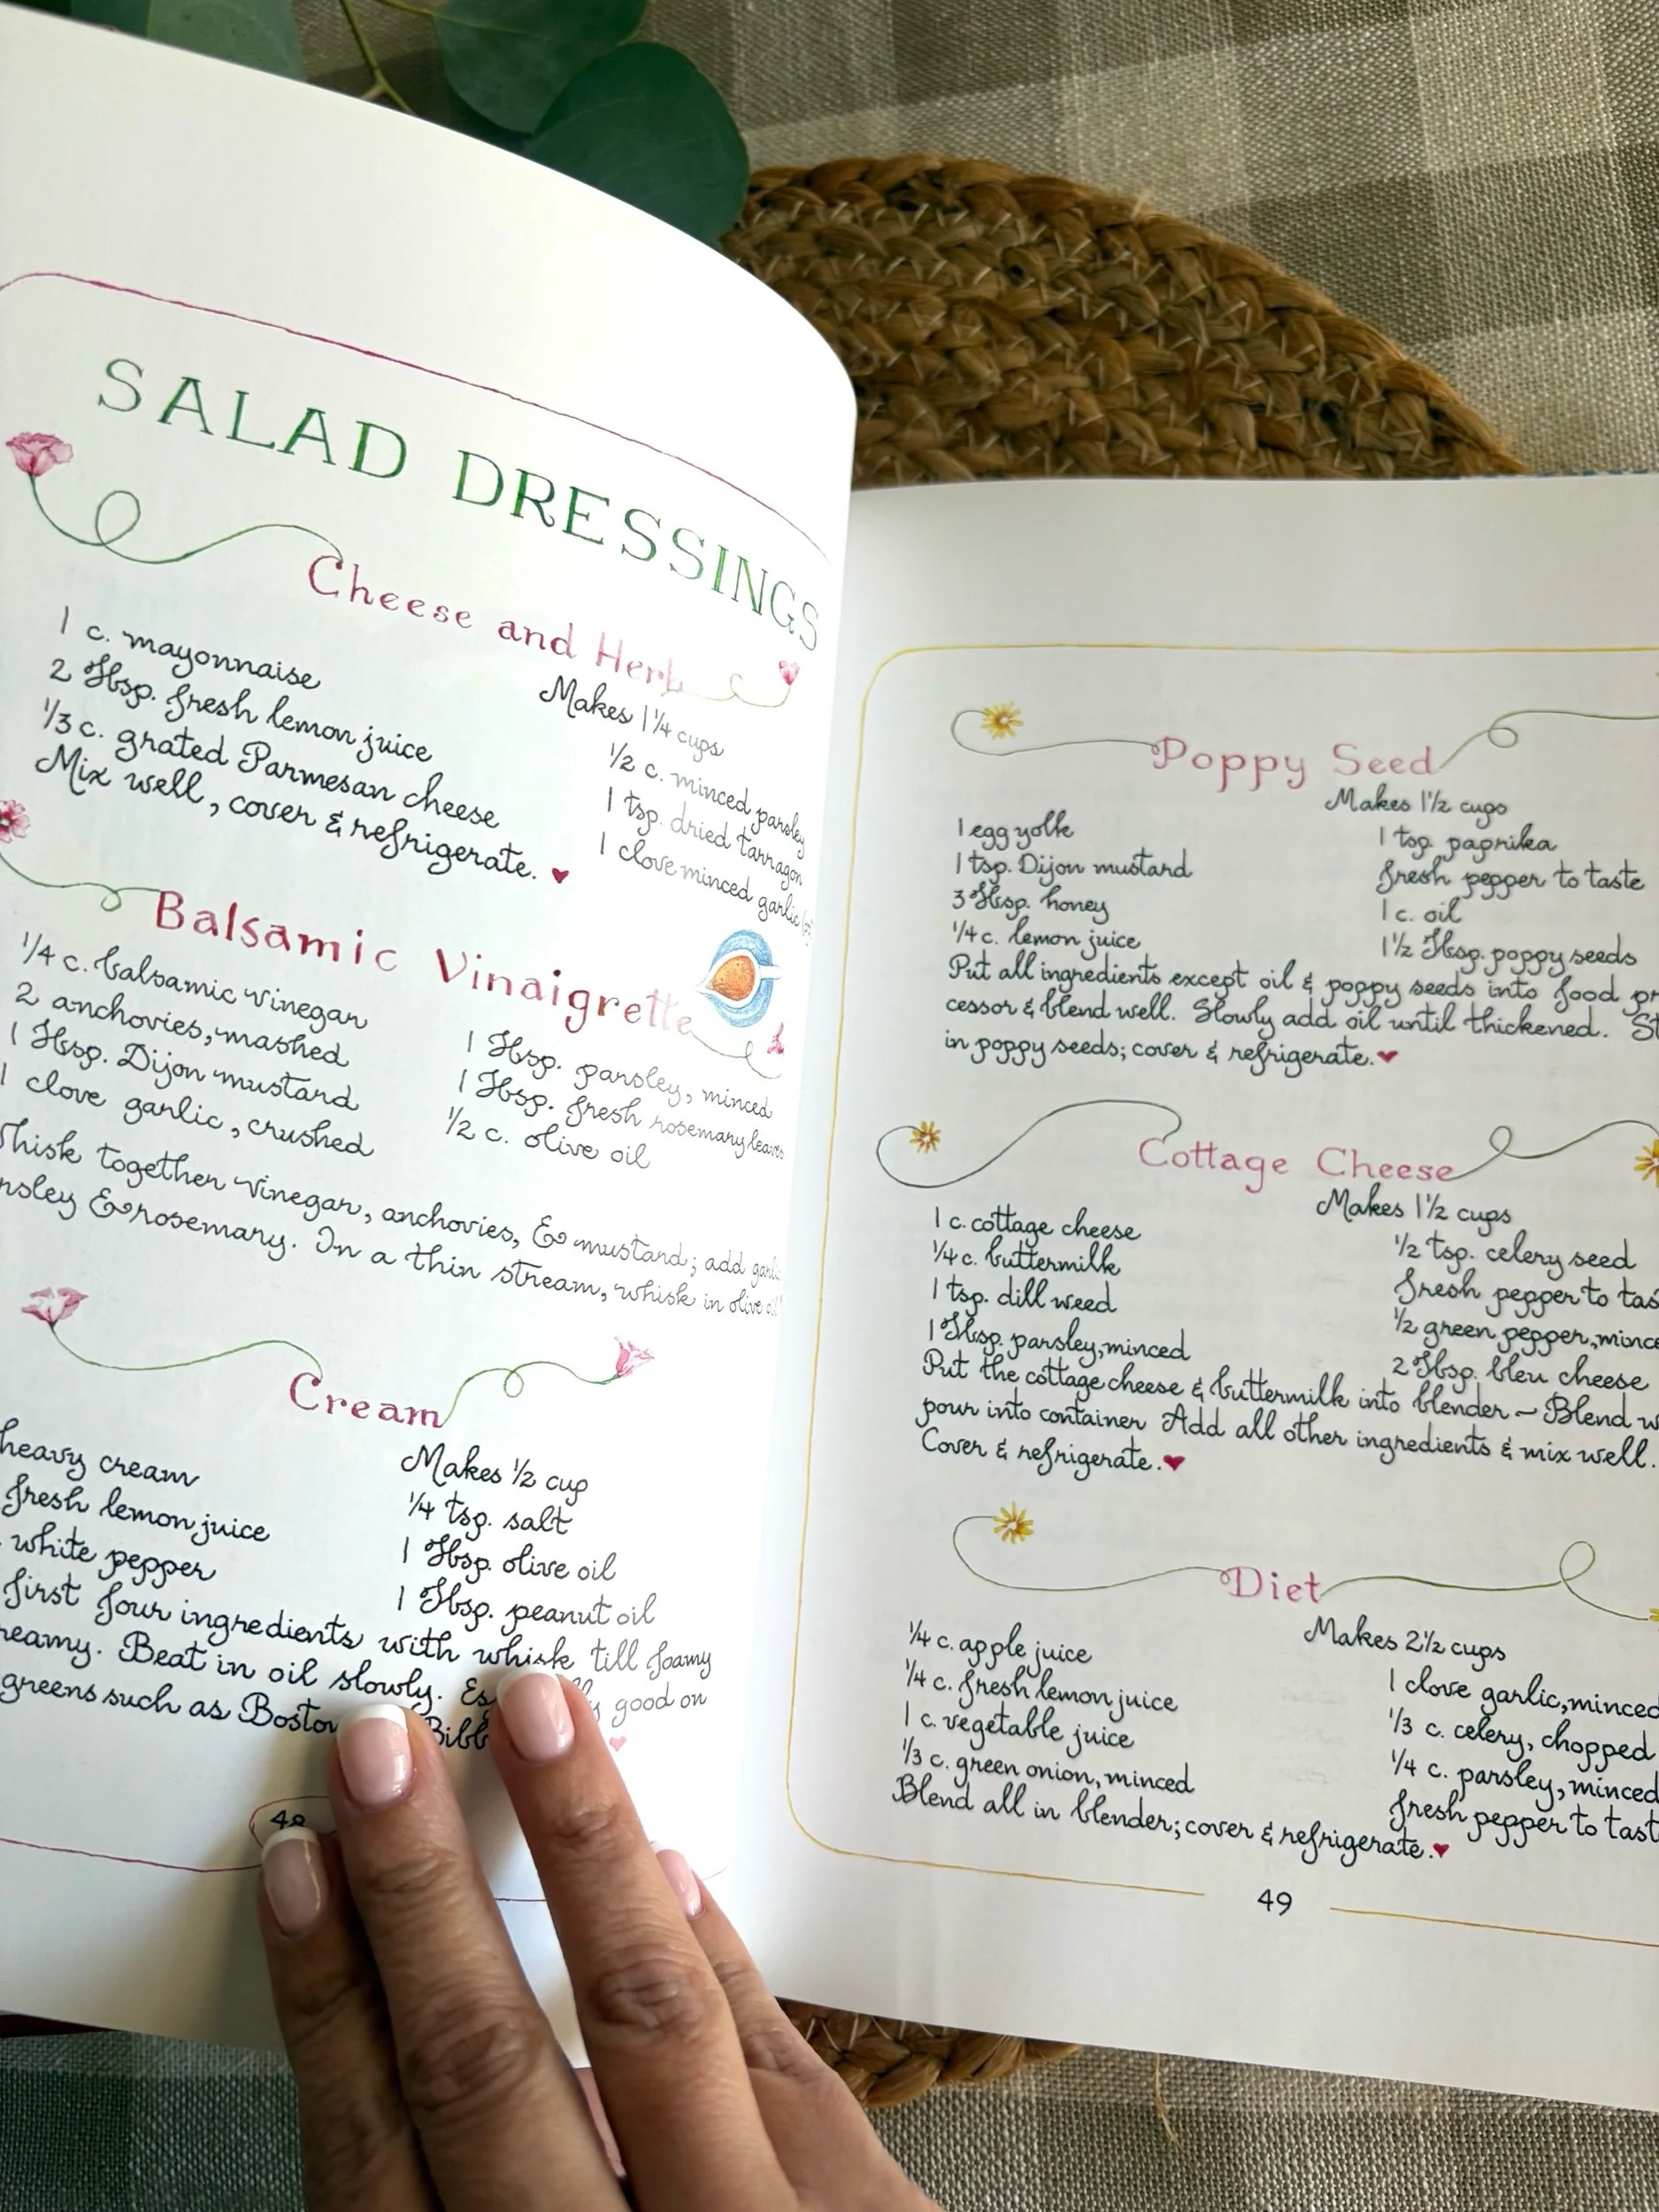 SALAD DRESSINGS
Cheese and Herb
Makes 1 1/4 cups
1 c. mayonnaise
2 Tbsp. fresh lemon juice
1/3 c. grated Parmesan cheese
1/2 c. minced parsley
1 tsp. dried tarragon
1 clove minced garlic
Mix well, cover & refrigerate. ♥
Balsamic Vinaigrette
1/4 c. balsamic vinegar
2 anchovies, mashed
1 Tbsp. Dijon mustard
1 clove garlic, crushed
1 Tbsp. parsley, minced
1 Tbsp. fresh rosemary leaves
1/2 c. olive oil
together vinegar, anchovies, & mustard; add
& rosemary. In a thin stream, whisk in olive oil
Cream
Makes 1/2 cup
heavy cream
fresh lemon juice
white pepper
1/4 tsp. salt
1 Tbsp. olive oil
1 Tbsp. peanut oil
first four ingredients with whisk till foamy
Beat in oil slowly. good on
greens such as
48
Poppy Seed
Makes 1 1/2 cups
1 egg yolk
1 tsp. Dijon mustard
3 Tbsp. honey
1/4 c. lemon juice
1 tsp. paprika
fresh pepper to taste
1 c. oil
1 1/2 Tbsp. poppy seeds
Put all ingredients except oil & poppy seeds into food pr
cessor & blend well. Slowly add oil until thickened. St
in poppy seeds; cover & refrigerate. ♥
Cottage Cheese
Makes 1 1/2 cups
1 c. cottage cheese
1/4 c. buttermilk
1 tsp. dill weed
1 Tbsp. parsley, minced
1/2 tsp. celery seed
fresh pepper to tas
1/2 green pepper, mince
2 Tbsp. bleu cheese
Put the cottage cheese & buttermilk into blender – Blend w
pour into container Add all other ingredients & mix well.
Cover & refrigerate. ♥
Diet
Makes 2 1/2 cups
1/4 c. apple juice
1/4 c. fresh lemon juice
1 c. vegetable juice
1/3 c. green onion, minced
1 clove garlic, minced
1/3 c. celery, chopped
1/4 c. parsley, minced
fresh pepper to tast
Blend all in blender; cover & refrigerate. ♥
49